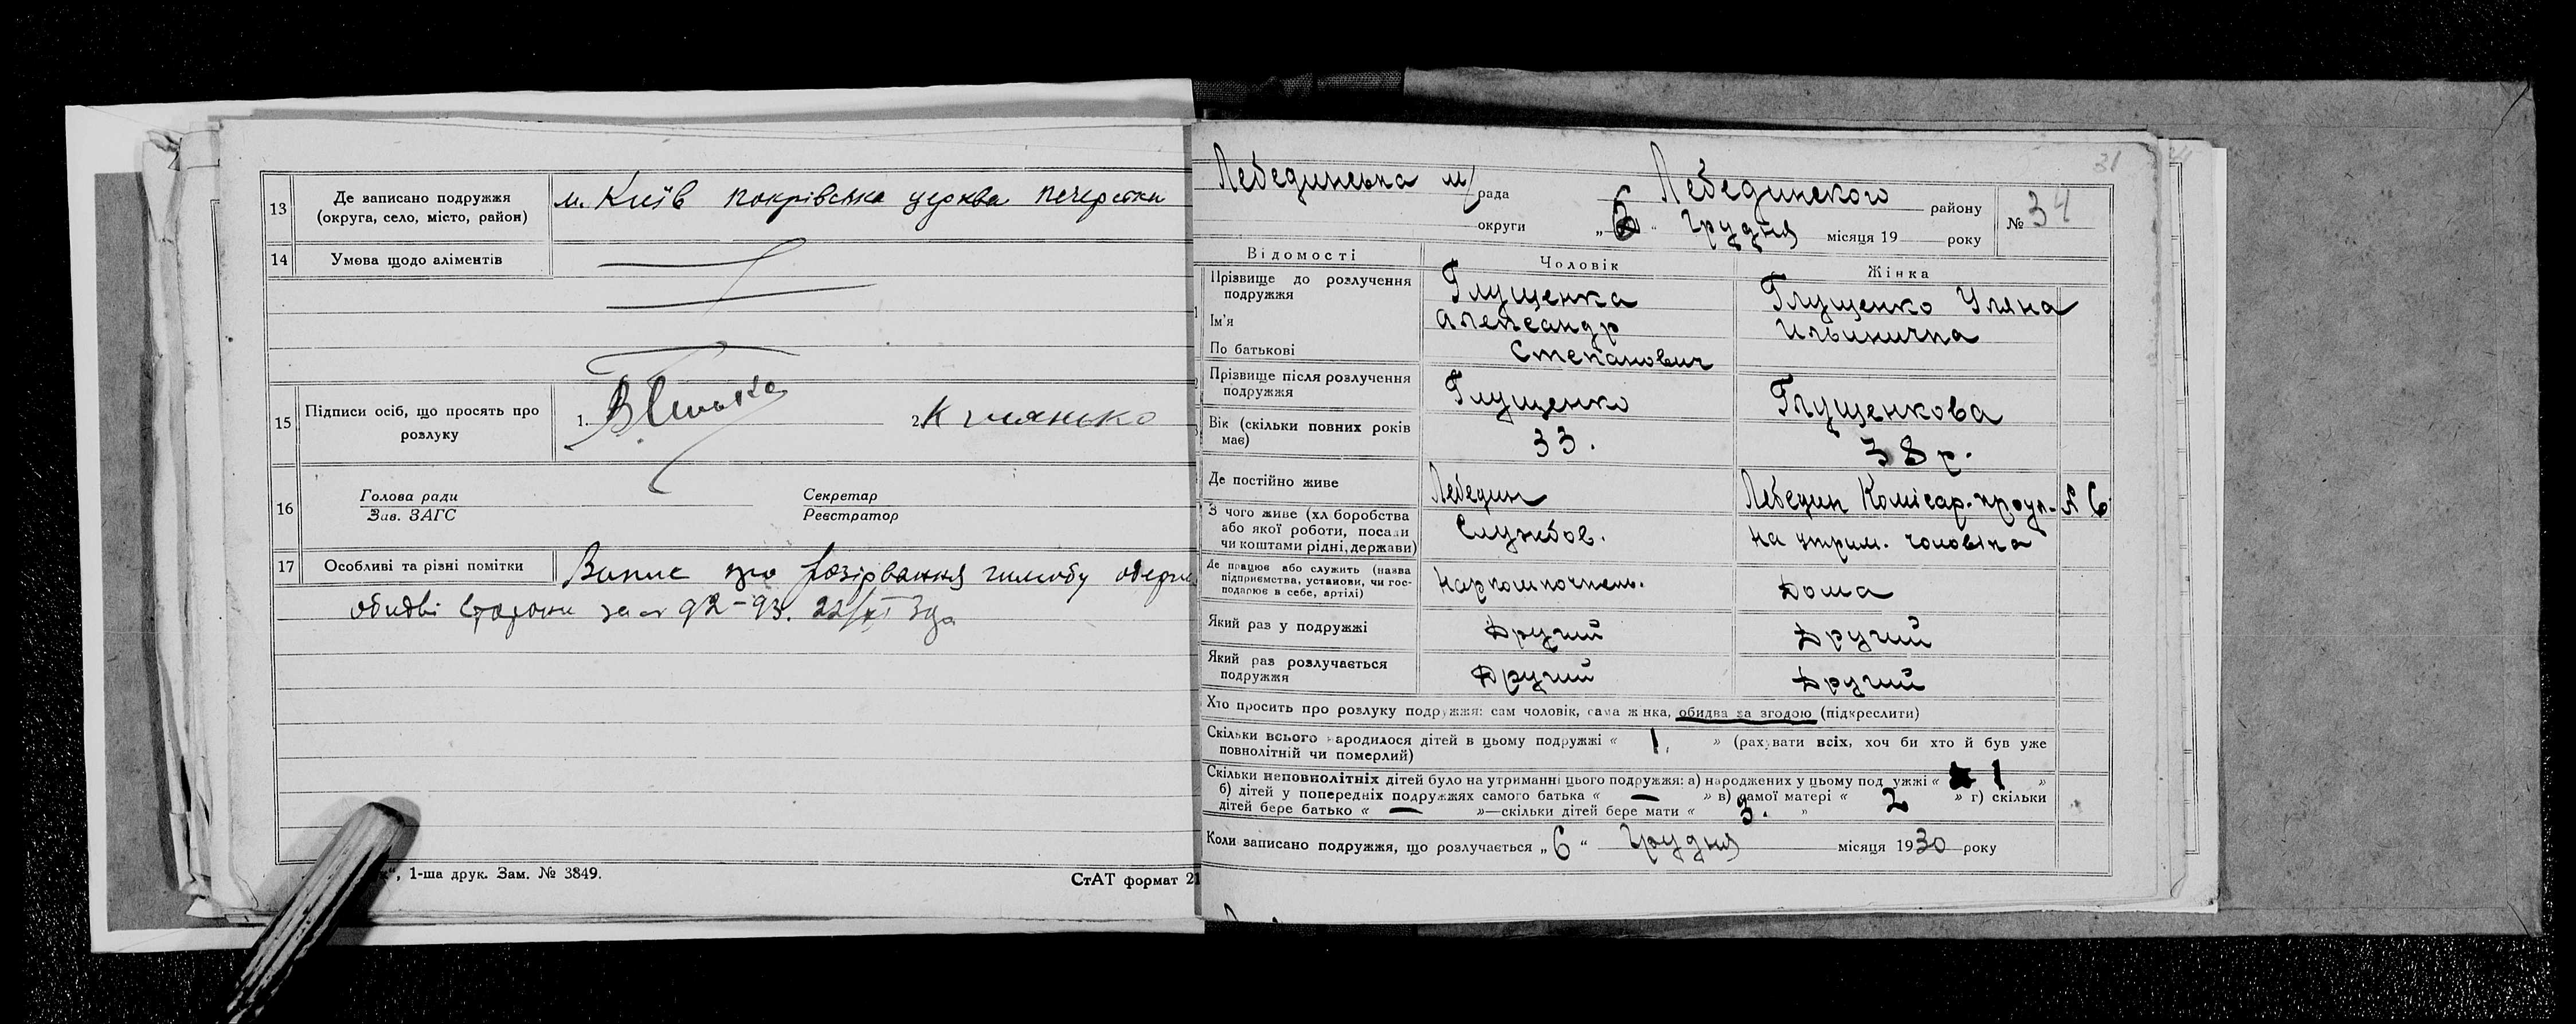 13 Де записано подружжя (округа, село, місто, район) м. Київ покрівська церква
14 Умова щодо аліментів
15 Підписи осіб, що просять про розлуку 1. 2.
16 Голова ради Зав. ЗАГС Секретар Реєстратор
17 Особливі та різні помітки Випис про розірвання шлюбу
обидві сторони за № 92-93. 22/XI
1-ша друк. Зам. № 3849. СтАТ формат 21
31
Лебединська м/рада Лебединского району № 34
округи „6“ Грудня місяця 19 року
Відомості Чоловік Жінка
1 Прізвище до розлучення подружжя Глущенка Глущенко Уляна
Ім'я Александр Ильинична
По батькові Степанович
Прізвище після розлучення подружжя Глущенко Глущенкова
Вік (скільки повних років має) 33. 38 р.
Де постійно живе Лебедин Лебедин Комісар. проул. № 6
З чого живе (хл боробства або якої роботи, посади чи коштами рідні, держави) Службов. на утрим. чоловіка
Де працює або служить (назва підприємства, установи, чи господарює в себе, артілі) Наркомпочтель. Дома
Який раз у подружжі Другий Другий
Який раз розлучається подружжя Другий Другий
Хто просить про розлуку подружжя: сам чоловік, сама жінка, обидва за згодою (підкреслити)
Скільки всього народилося дітей в цьому подружжі « 1. » (рахувати всіх, хоч би хто й був уже
повнолітній чи померлий)
Скільки неповнолітніх дітей було на утриманні цього подружжя: а) народжених у цьому под ужжі « 1 »
б) дітей у попередніх подружжях самого батька « — » в) самої матері « 2 » г) скільки
дітей бере батько « — »—скільки дітей бере мати « 3. »
Коли записано подружжя, що розлучається „6“ Грудня місяця 1930 року